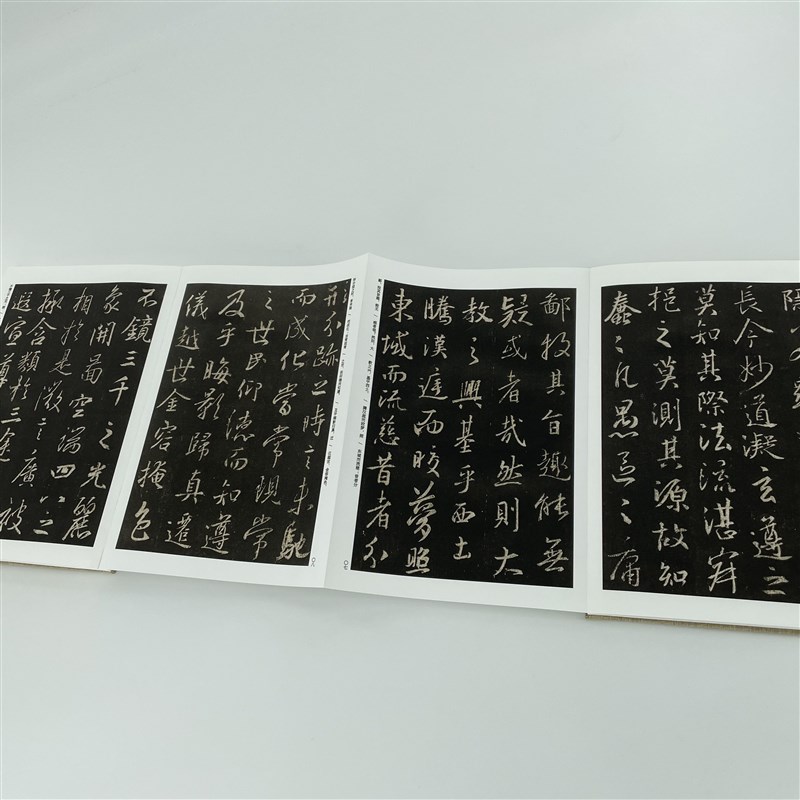 長今妙道凝玄遵之
莫知其際法流湛寂
挹之莫測其源故知
蠢〻凡愚區〻庸
鄙投其旨趣能無
疑或者哉然則大
教之興基乎西土
騰漢庭而皎夢照
東域而流慈昔者分
〇七
形分跡之時言未馳
而成化當常現常
之世民仰德而知遵
及乎晦影歸真遷
儀越世金容掩色
〇八
不鏡三千之光麗
象開圖空端四八之
相於是微言廣被
拯含類於三途
遐宣導